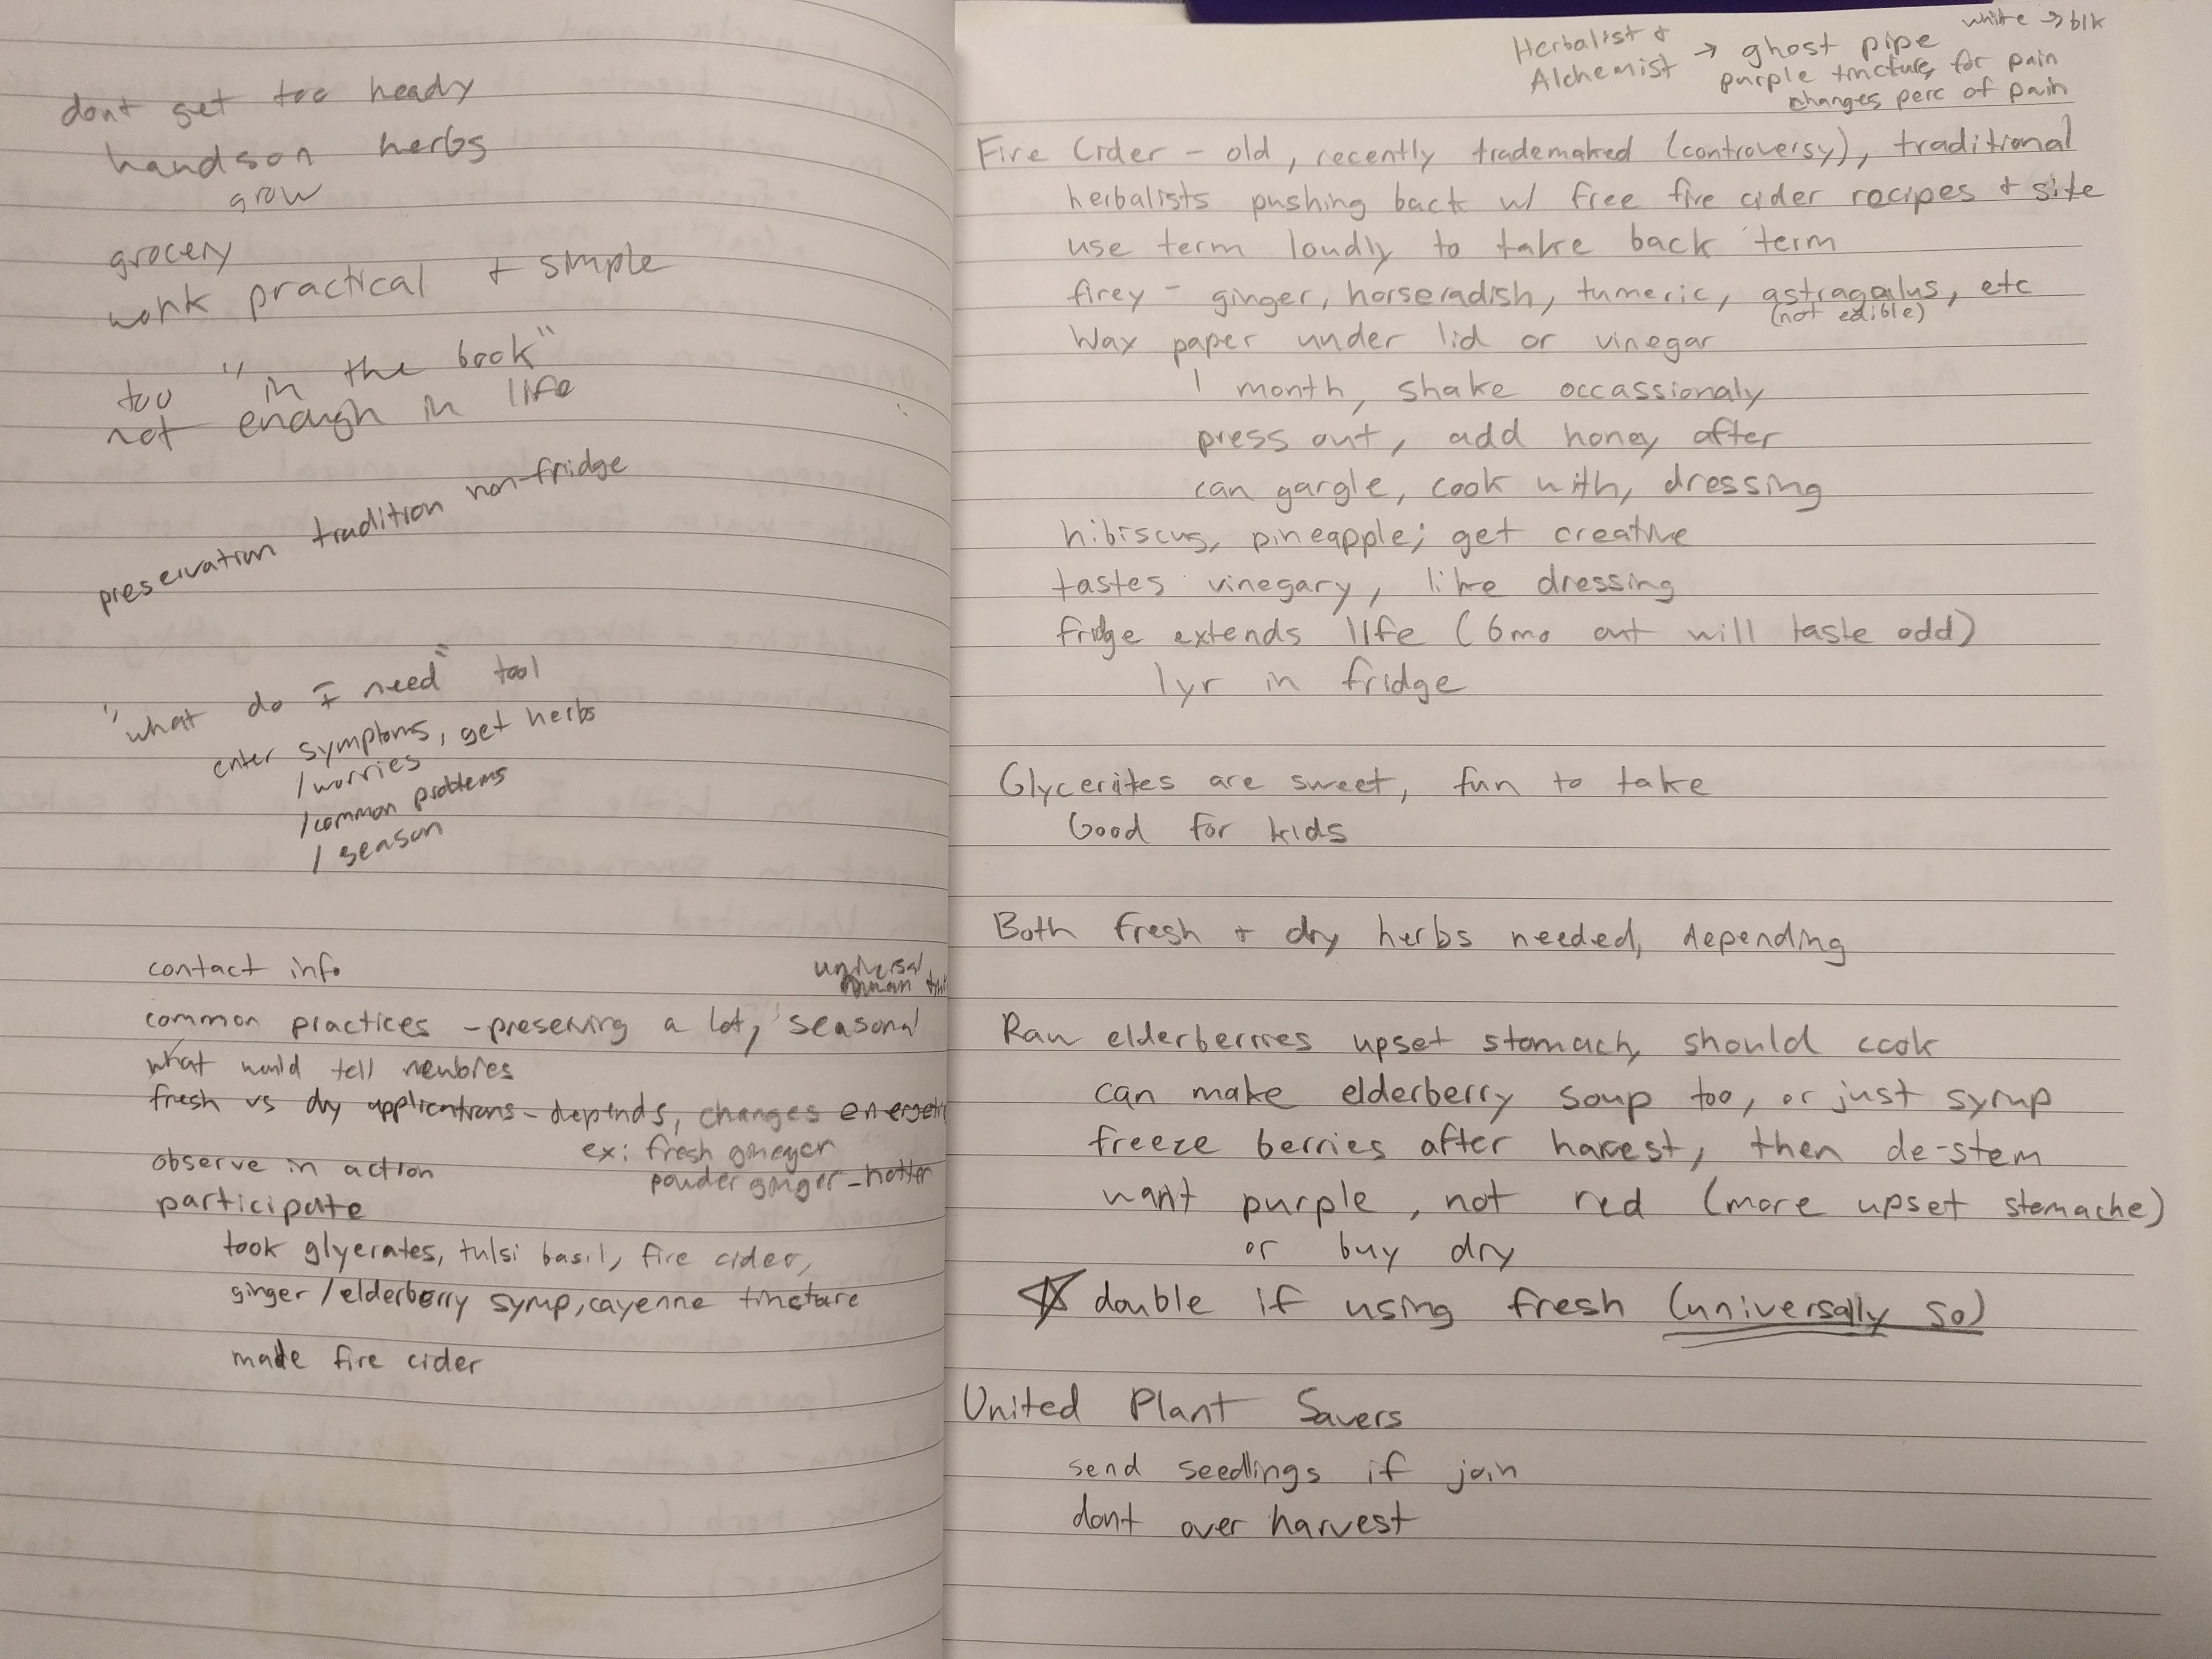 dont get too heady
handson herbs
grow
grocery
work practical + simple
too "in the book"
not enough in life
preservation tradition non-fridge
"what do I need" tool
enter symptoms, get herbs
/worries
/common problems
/season
contact info
universal
human
common practices - preserving a lot, seasonal
what would tell newbies
fresh vs dry applications - depends, changes
ex: fresh
observe in action
powder ginger - hotter
participate
took glyerates, tulsi basil, fire cider,
ginger/elderberry syrup, cayenne tincture
made fire cider
Herbalist + Alchemist → ghost pipe white → blk
purple tincture, for pain
changes perc of pain
Fire Cider - old, recently trademaked (controversy), traditional
herbalists pushing back w/ free fire cider recipes + site
use term loudly to take back term
firey - ginger, horseradish, tumeric, astragalus, etc
(not edible)
Wax paper under lid or vinegar
1 month, shake occassionaly
press out, add honey after
can gargle, cook with, dressing
hibiscus, pineapple; get creative
tastes vinegary, like dressing
fridge extends life (6mo out will taste odd)
1yr in fridge
Glycerites are sweet, fun to take
Good for kids
Both fresh + dry herbs needed, depending
Raw elderberries upset stomach, should cook
can make elderberry soup too, or just syrup
freeze berries after harest, then de-stem
want purple, not red (more upset stomache)
or buy dry
☆ double if using fresh (universally so)
United Plant Savers
send seedlings if join
dont over harvest